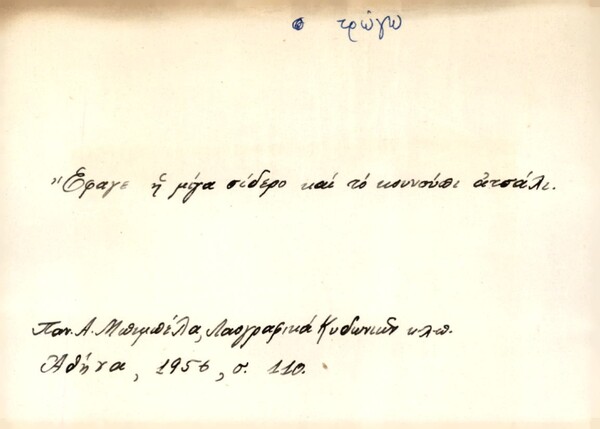 τρώγω
Ἔφαγε ἡ μῦγα σίδερο καί τό κουνούπι ἀτσάλι.
Παν. Α. Μπιμπέλα, Λαογραφικά Κυδωνιῶν κλπ.
Ἀθήνα, 1956, σ. 110.